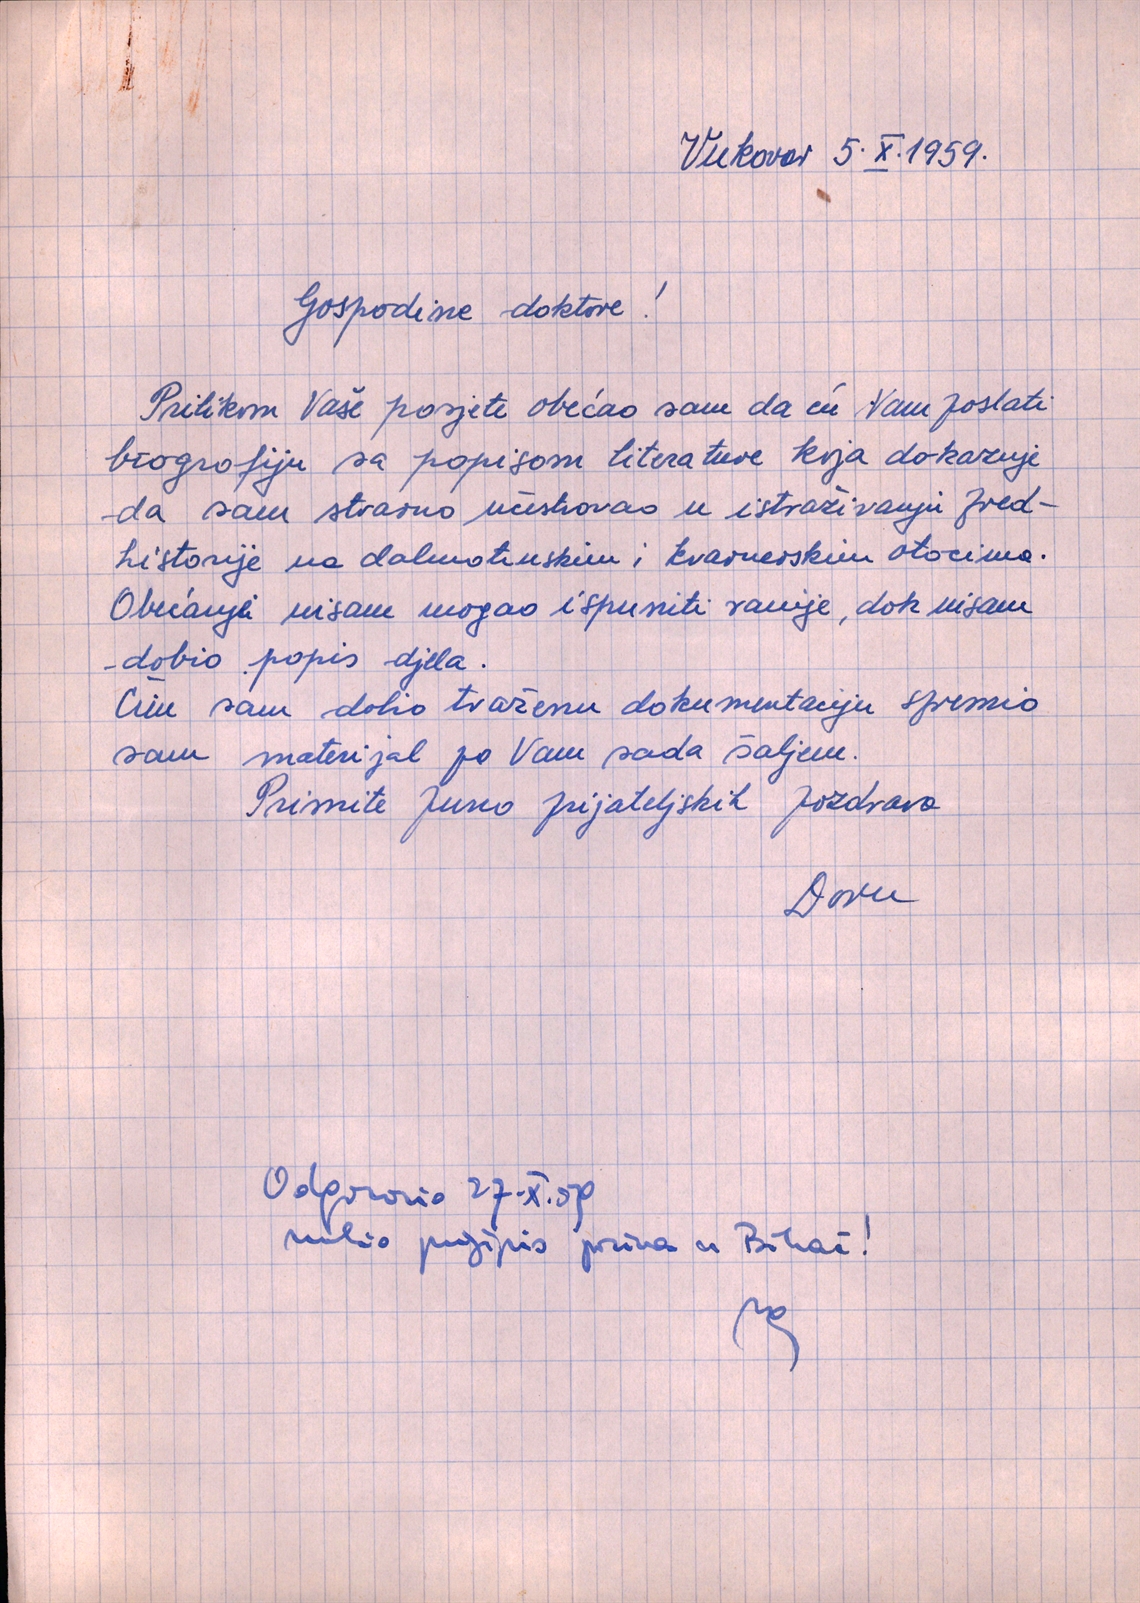 Vukovar 5. X. 1959.
Gospodine doktore!
Prilikom Vaše posjete obećao sam da ću Vam poslati
biografiju sa popisom literature koja dokazuje
da sam stvarno učestvovao u istraživanju pred-
historije na dalmatinskim i kvarnerskim otocima.
Obećanje nisam mogao ispuniti ranije, dok nisam
dobio popis djela.
Čim sam dobio traženu dokumentaciju spremio
sam materijal pa Vam sada šaljem.
Primite puno prijateljskih pozdrava
Odgovorio 27.X.59
u Bihać!